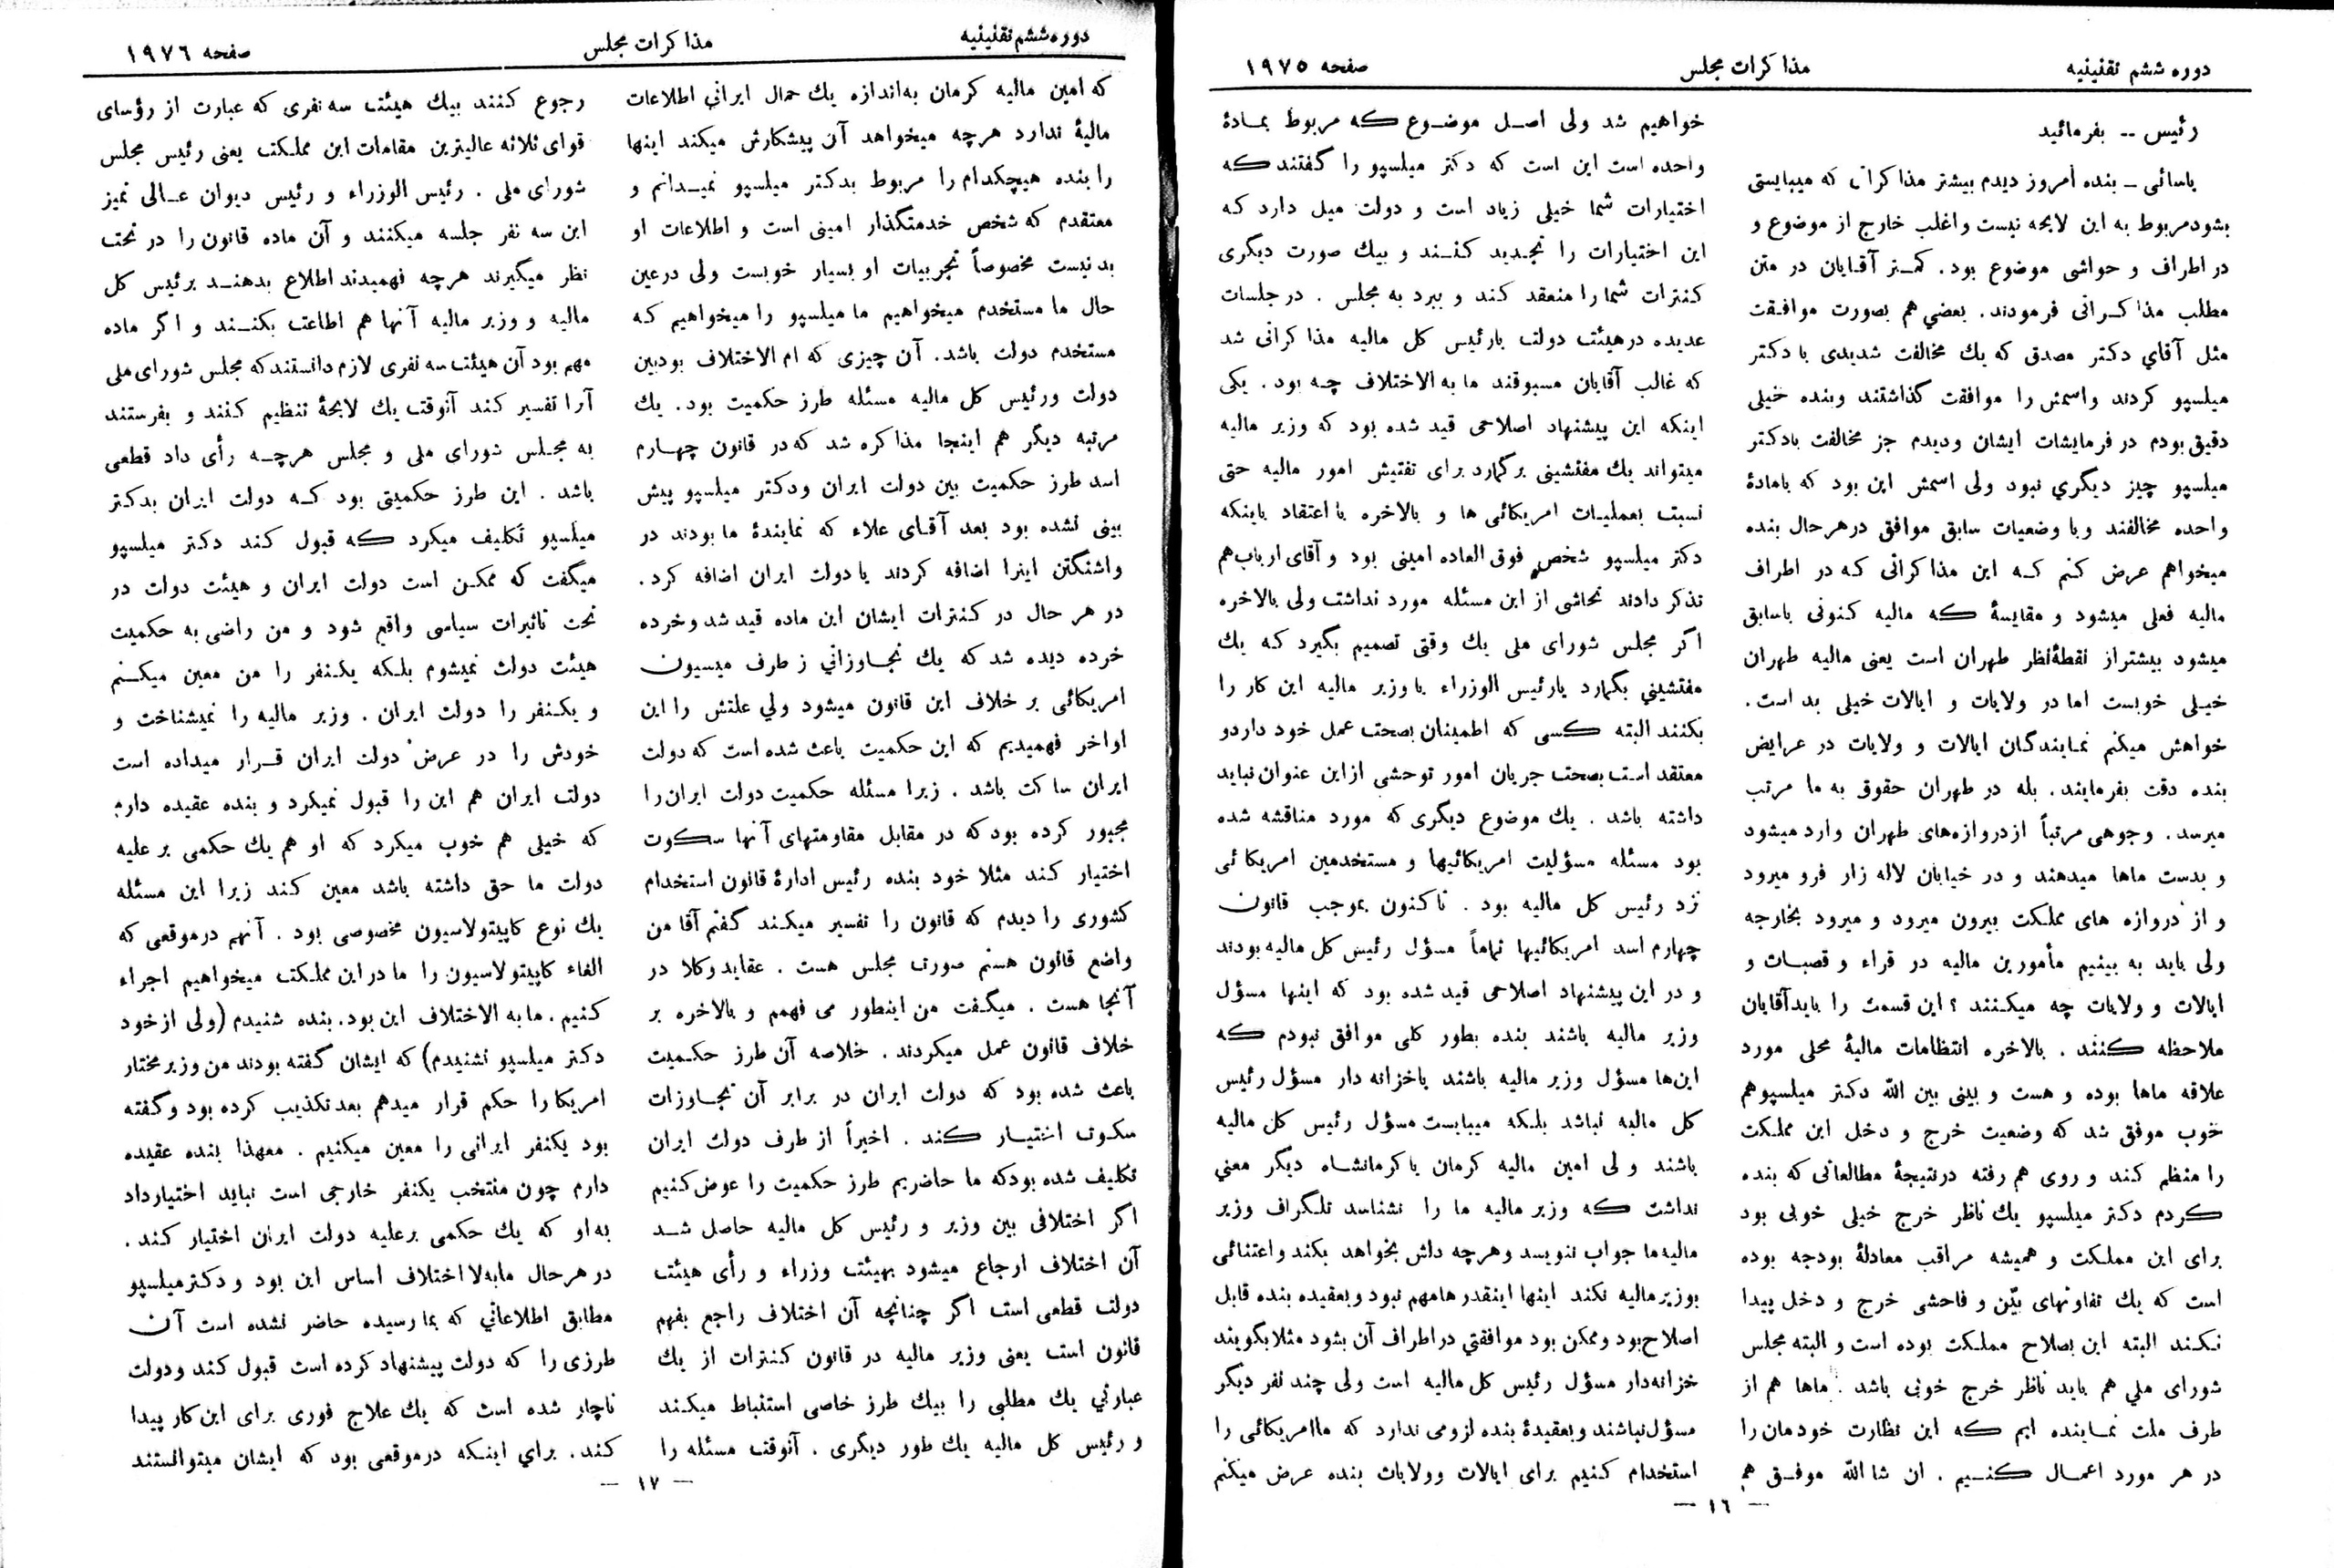 دوره ششم تقنینیه
مذاکرات مجلس
صفحه ۱۹۷۵
رئیس -- بفرمائید
یاسائی ـ بنده امروز دیدم بیشتر مذاکراتی که میبایستی
بشود مربوط به این لایحه نیست و اغلب خارج از موضوع و
در اطراف و حواشی موضوع بود. کمتر آقایان در متن
مطلب مذاکراتی فرمودند. بعضی هم بصورت موافقت
مثل آقای دکتر مصدق که یك مخالفت شدیدی با دکتر
میلسپو کردند و اسمش را موافقت گذاشتند و بنده خیلی
دقیق بودم در فرمایشات ایشان و دیدم جز مخالفت با دکتر
میلسپو چیز دیگری نبود ولی اسمش این بود که با مادهٔ
واحده مخالفند و با وضعیات سابق موافق در هر حال بنده
میخواهم عرض کنم که این مذاکراتی که در اطراف
مالیه فعلی میشود و مقایسهٔ که مالیه کنونی با سابق
میشود بیشتر از نقطهٔ نظر طهران است یعنی مالیه طهران
خیلی خوبست اما در ولایات و ایالات خیلی بد است.
خواهش میکنم نمایندگان ایالات و ولایات در عرایض
بنده دقت بفرمایند. بله در طهران حقوق به ما مرتب
میرسد. وجوهی مرتباً از دروازه‌های طهران وارد میشود
و بدست ماها میدهند و در خیابان لاله زار فرو میرود
و از دروازه های مملکت بیرون میرود و میرود بخارجه
ولی باید به بینیم مأمورین مالیه در قراء و قصبات و
ایالات و ولایات چه میکنند؟ این قسمت را باید آقایان
ملاحظه کنند. بالاخره انتظامات مالیهٔ محلی مورد
علاقه ماها بوده و هست و بینی بین الله دکتر میلسپو هم
خوب موفق شد که وضعیت خرج و دخل این مملکت
را منظم کند و روی هم رفته در نتیجهٔ مطالعاتی که بنده
کردم دکتر میلسپو یك ناظر خرج خیلی خوبی بود
برای این مملکت و همیشه مراقب معادلهٔ بودجه بوده
است که یك تفاوتهای بیّن و فاحشی خرج و دخل پیدا
نکند البته این بصلاح مملکت بوده است و البته مجلس
شورای ملی هم باید ناظر خرج خوبی باشد. ماها هم از
طرف ملت نماینده ایم که این نظارت خودمان را
در هر مورد اعمال کنیم. ان شاالله موفق هم
خواهیم شد ولی اصل موضوع که مربوط بمادهٔ
واحده است این است که دکتر میلسپو را گفتند که
اختیارات شما خیلی زیاد است و دولت میل دارد که
این اختیارات را تجدید کنند و بیك صورت دیگری
کنترات شما را منعقد کند و ببرد به مجلس. در جلسات
عدیده در هیئت دولت با رئیس کل مالیه مذاکراتی شد
که غالب آقایان مسبوقند ما به الاختلاف چه بود. یکی
اینکه این پیشنهاد اصلاحی قید شده بود که وزیر مالیه
میتواند یك مفتشینی برگمارد برای تفتیش امور مالیه حتی
نسبت بعملیات امریکائی ها و بالاخره با اعتقاد باینکه
دکتر میلسپو شخص فوق العاده امینی بود و آقای ارباب هم
تذکر دادند تحاشی از این مسئله مورد نداشت ولی بالاخره
اگر مجلس شورای ملی یك وقتی تصمیم بگیرد که یك
مفتشینی بگمارد یا رئیس الوزراء یا وزیر مالیه این کار را
بکنند البته کسی که اطمینان بصحت عمل خود دارد و
معتقد است بصحت جریان امور توحشی از این عنوان نباید
داشته باشد. یك موضوع دیگری که مورد مناقشه شده
بود مسئله مسؤلیت امریکائیها و مستخدمین امریکائی
نزد رئیس کل مالیه بود. تا کنون بموجب قانون
چهارم اسد امریکائیها تماماً مسؤل رئیس کل مالیه بودند
و در این پیشنهاد اصلاحی قید شده بود که اینها مسؤل
وزیر مالیه باشند بنده بطور کلی موافق نبودم که
این‌ها مسؤل وزیر مالیه باشند یا خزانه دار مسؤل رئیس
کل مالیه نباشد بلکه میبایست مسؤل رئیس کل مالیه
باشند ولی امین مالیه کرمان یا کرمانشاه دیگر معنی
نداشت که وزیر مالیه ما را نشناسد تلگراف وزیر
مالیه ما جواب ننویسد و هرچه دلش بخواهد بکند و اعتنائی
بوزیر مالیه نکند اینها اینقدرها مهم نبود و بعقیده بنده قابل
اصلاح بود و ممکن بود موافقتی در اطراف آن بشود مثلا بگویند
خزانه‌دار مسؤل رئیس کل مالیه است ولی چند نفر دیگر
مسؤل نباشند و بعقیدهٔ بنده لزومی ندارد که ما امریکائی را
استخدام کنیم برای ایالات و ولایات بنده عرض میکنم
— ۱٦ —
دوره ششم تقنینیه
مذاکرات مجلس
صفحه ۱۹۷٦
که امین مالیه کرمان به‌اندازه یك حمال ایرانی اطلاعات
مالیهٔ ندارد هرچه میخواهد آن پیشکارش میکند اینها
را بنده هیچکدام را مربوط بدکتر میلسپو نمیدانم و
معتقدم که شخص خدمتگذار امینی است و اطلاعات او
بد نیست مخصوصاً تجربیات او بسیار خوبست ولی در عین
حال ما مستخدم میخواهیم ما میلسپو را میخواهیم که
مستخدم دولت باشد. آن چیزی که ام الاختلاف بود بین
دولت و رئیس کل مالیه مسئله طرز حکمیت بود. یك
مرتبه دیگر هم اینجا مذاکره شد که در قانون چهارم
اسد طرز حکمیت بین دولت ایران و دکتر میلسپو پیش
بینی نشده بود بعد آقای علاء که نمایندهٔ ما بودند در
واشنگتن اینرا اضافه کردند یا دولت ایران اضافه کرد.
در هر حال در کنترات ایشان این ماده قید شد و خرده
خرده دیده شد که یك تجاوزاتی ز طرف میسیون
امریکائی بر خلاف این قانون میشود ولی علتش را این
اواخر فهمیدیم که این حکمیت باعث شده است که دولت
ایران ساکت باشد. زیرا مسئله حکمیت دولت ایران را
مجبور کرده بود که در مقابل مقاومتهای آنها سکوت
اختیار کند مثلا خود بنده رئیس ادارهٔ قانون استخدام
کشوری را دیدم که قانون را تفسیر میکند گفتم آقا من
واضع قانون هستم صورت مجلس هست. عقاید وکلا در
آنجا هست. میگفت من اینطور می فهمم و بالاخره بر
خلاف قانون عمل میکردند. خلاصه آن طرز حکمیت
باعث شده بود که دولت ایران در برابر آن تجاوزات
سکوت اختیار کند. اخیراً از طرف دولت ایران
تکلیف شده بود که ما حاضریم طرز حکمیت را عوض کنیم
اگر اختلافی بین وزیر و رئیس کل مالیه حاصل شد
آن اختلاف ارجاع میشود بهیئت وزراء و رأی هیئت
دولت قطعی است اگر چنانچه آن اختلاف راجع بفهم
قانون است یعنی وزیر مالیه در قانون کنترات از یك
عبارتی یك مطلبی را بیك طرز خاصی استنباط میکند
و رئیس کل مالیه یك طور دیگری. آنوقت مسئله را
رجوع کنند بیك هیئت سه نفری که عبارت از رؤسای
قوای ثلاثه عالیترین مقامات این مملکت یعنی رئیس مجلس
شورای ملی. رئیس الوزراء و رئیس دیوان عالی تمیز
این سه نفر جلسه میکنند و آن ماده قانون را در تحت
نظر میگیرند هرچه فهمیدند اطلاع بدهند برئیس کل
مالیه و وزیر مالیه آنها هم اطاعت بکنند و اگر ماده
مهم بود آن هیئت سه نفری لازم دانستند که مجلس شورای ملی
آنرا تفسیر کند آنوقت یك لایحهٔ تنظیم کنند و بفرستند
به مجلس شورای ملی و مجلس هرچه رأی داد قطعی
باشد. این طرز حکمیتی بود که دولت ایران بدکتر
میلسپو تکلیف میکرد که قبول کند دکتر میلسپو
میگفت که ممکن است دولت ایران و هیئت دولت در
تحت تاثیرات سیاسی واقع شود و من راضی به حکمیت
هیئت دولت نمیشوم بلکه یکنفر را من معین میکنم
و یکنفر را دولت ایران. وزیر مالیه را نمیشناخت و
خودش را در عرض دولت ایران قرار میداده است
دولت ایران هم این را قبول نمیکرد و بنده عقیده دارم
که خیلی هم خوب میکرد که او هم یك حکمی بر علیه
دولت ما حق داشته باشد معین کند زیرا این مسئله
یك نوع کاپیتولاسیون مخصوصی بود. آنهم در موقعی که
الغاء کاپیتولاسیون را ما در این مملکت میخواهیم اجراء
کنیم. ما به الاختلاف این بود. بنده شنیدم (ولی از خود
دکتر میلسپو نشنیدم) که ایشان گفته بودند من وزیر مختار
امریکا را حکم قرار میدهم بعد تکذیب کرده بود و گفته
بود یکنفر ایرانی را معین میکنیم. معهذا بنده عقیده
دارم چون منتخب یکنفر خارجی است نباید اختیار داد
به او که یك حکمی بر علیه دولت ایران اختیار کند.
در هر حال ما به لا اختلاف اساس این بود و دکتر میلسپو
مطابق اطلاعاتی که بما رسیده حاضر نشده است آن
طرزی را که دولت پیشنهاد کرده است قبول کند و دولت
ناچار شده است که یك علاج فوری برای این کار پیدا
کند. برای اینکه در موقعی بود که ایشان میتوانستند
— ۱۷ —